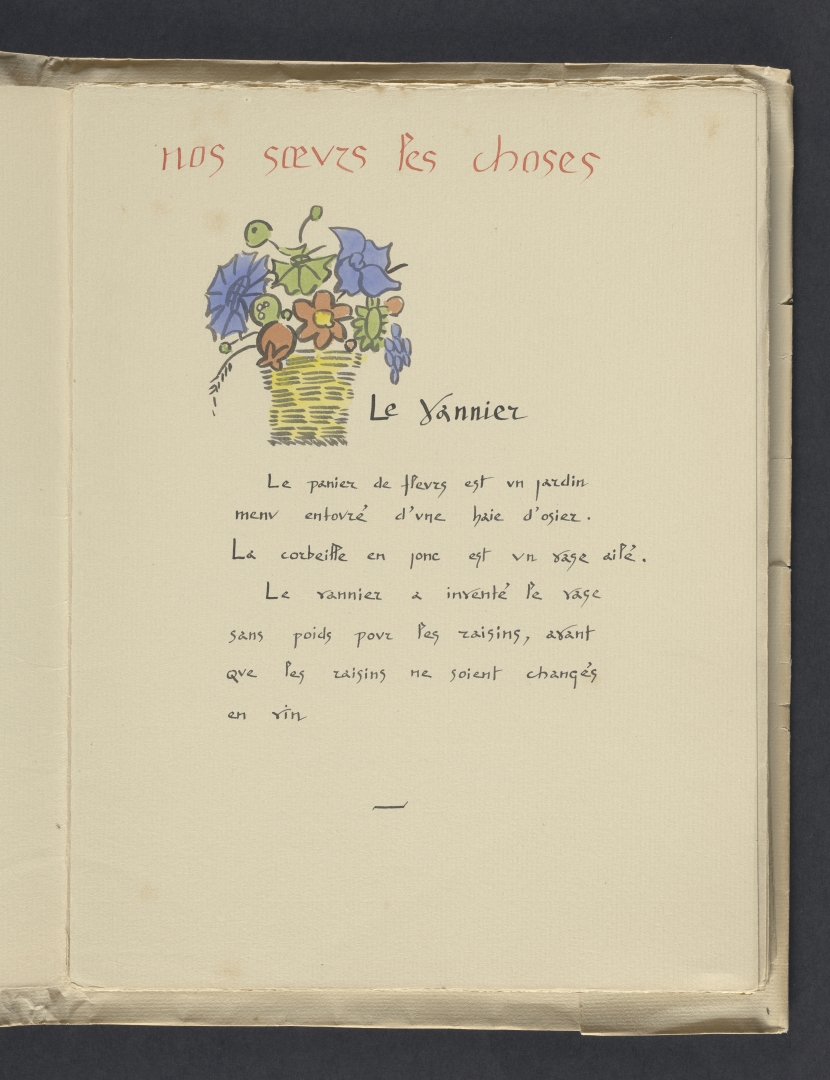 nos sœvrs les choses
Le Vannier
Le panier de flevrs est vn jardin
menv entovré d'vne haie d'osier.
La corbeille en jonc est vn vase ailé.
Le vannier a inventé le vase
sans poids povr les raisins, avant
qve les raisins ne soient changés
en vin